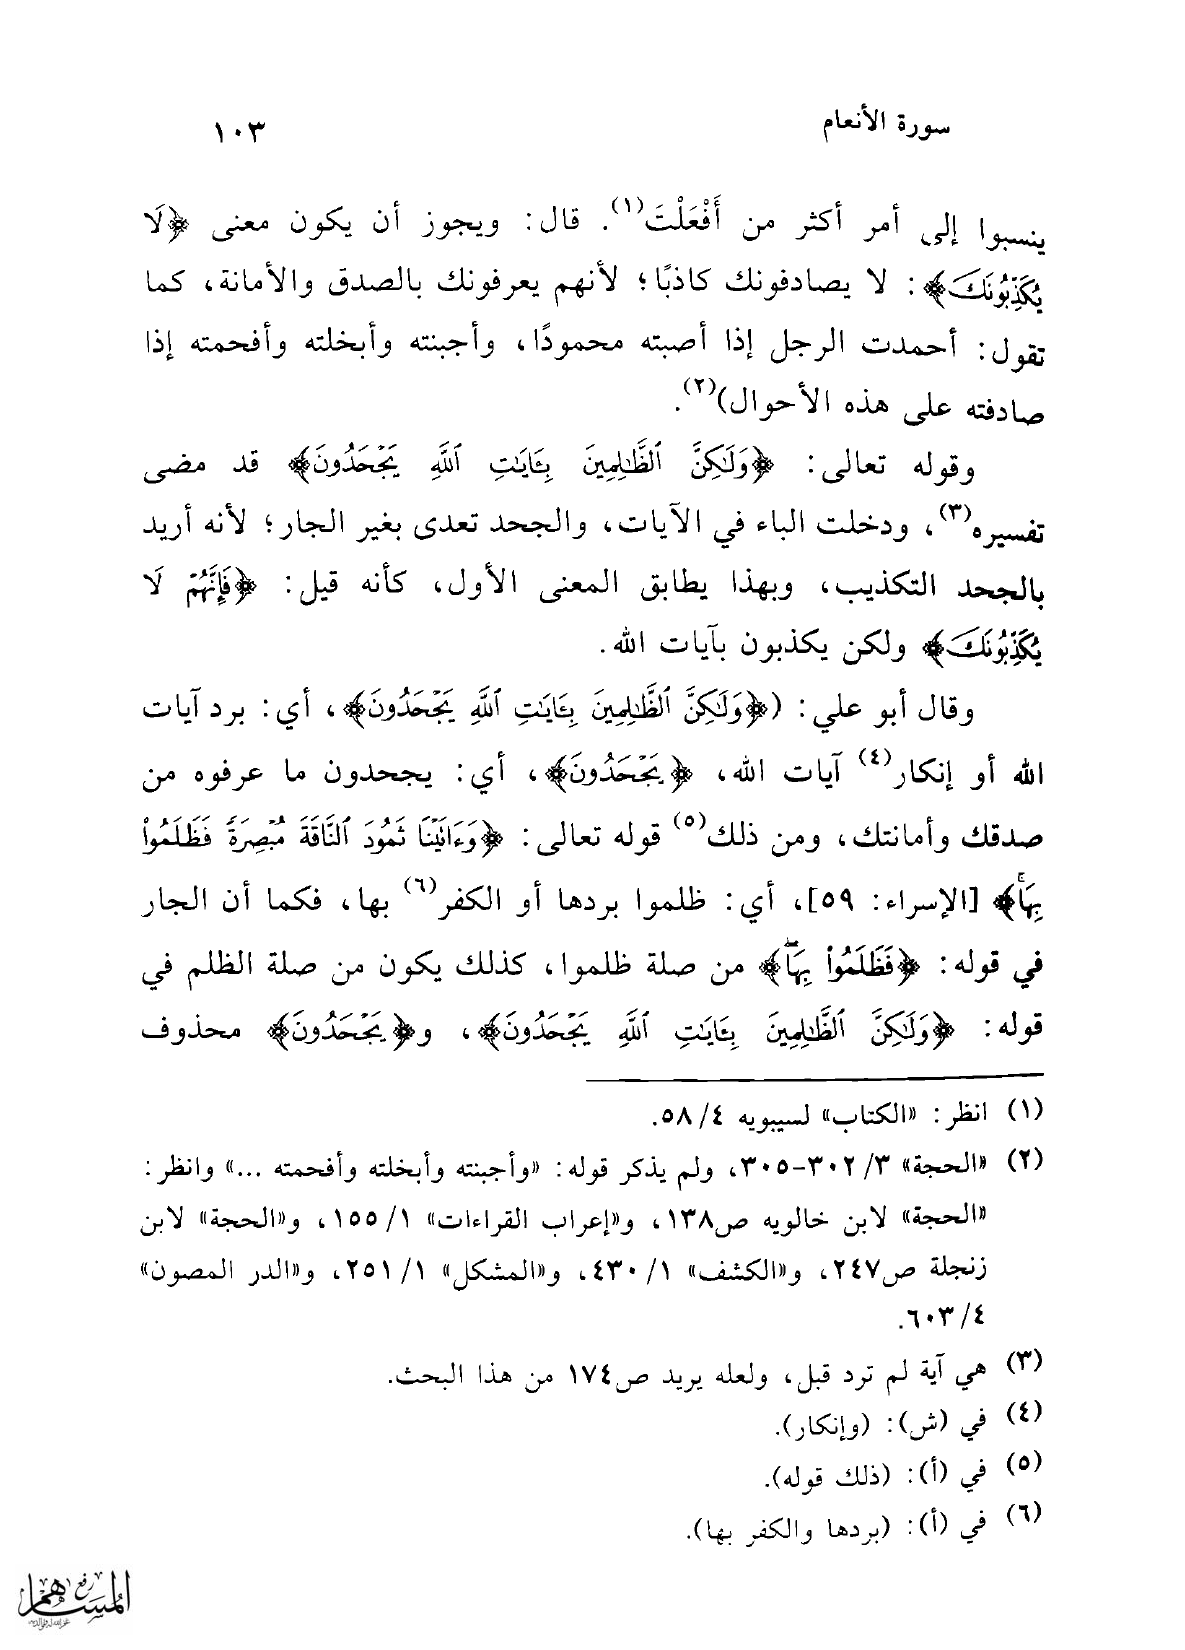 سورة الأنعام ١٠٣
ينسبوا إلى أمر أكثر من أَفْعَلْتَ(١). قال: ويجوز أن يكون معنى ﴿لَا
يُكَذِّبُونَكَ﴾: لا يصادفونك كاذبًا؛ لأنهم يعرفونك بالصدق والأمانة، كما
تقول: أحمدت الرجل إذا أصبته محمودًا، وأجبنته وأبخلته وأفحمته إذا
صادفته على هذه الأحوال)(٢).
وقوله تعالى: ﴿وَلَٰكِنَّ ٱلظَّٰلِمِينَ بِـَٔايَٰتِ ٱللَّهِ يَجۡحَدُونَ﴾ قد مضى
تفسيره(٣)، ودخلت الباء في الآيات، والجحد تعدى بغير الجار؛ لأنه أريد
بالجحد التكذيب، وبهذا يطابق المعنى الأول، كأنه قيل: ﴿فَإِنَّهُمۡ لَا
يُكَذِّبُونَكَ﴾ ولكن يكذبون بآيات الله.
وقال أبو علي: (﴿وَلَٰكِنَّ ٱلظَّٰلِمِينَ بِـَٔايَٰتِ ٱللَّهِ يَجۡحَدُونَ﴾، أي: برد آيات
الله أو إنكار(٤) آيات الله، ﴿يَجۡحَدُونَ﴾، أي: يجحدون ما عرفوه من
صدقك وأمانتك، ومن ذلك(٥) قوله تعالى: ﴿وَءَاتَيۡنَا ثَمُودَ ٱلنَّاقَةَ مُبۡصِرَةٗ فَظَلَمُواْ
بِهَاۚ﴾ [الإسراء: ٥٩]، أي: ظلموا بردها أو الكفر(٦) بها، فكما أن الجار
في قوله: ﴿فَظَلَمُواْ بِهَاۖ﴾ من صلة ظلموا، كذلك يكون من صلة الظلم في
قوله: ﴿وَلَٰكِنَّ ٱلظَّٰلِمِينَ بِـَٔايَٰتِ ٱللَّهِ يَجۡحَدُونَ﴾، و﴿يَجۡحَدُونَ﴾ محذوف
(١) انظر: «الكتاب» لسيبويه ٤/٥٨.
(٢) «الحجة» ٣/ ٣٠٢-٣٠٥، ولم يذكر قوله: «وأجبنته وأبخلته وأفحمته ...» وانظر:
«الحجة» لابن خالويه ص١٣٨، و«إعراب القراءات» ١/ ١٥٥، و«الحجة» لابن
زنجلة ص٢٤٧، و«الكشف» ١/ ٤٣٠، و«المشكل» ١/ ٢٥١، و«الدر المصون»
٤/ ٦٠٣.
(٣) هي آية لم ترد قبل، ولعله يريد ص١٧٤ من هذا البحث.
(٤) في (ش): (وإنكار).
(٥) في (أ): (ذلك قوله).
(٦) في (أ): (بردها والكفر بها).
رفع
المساهم